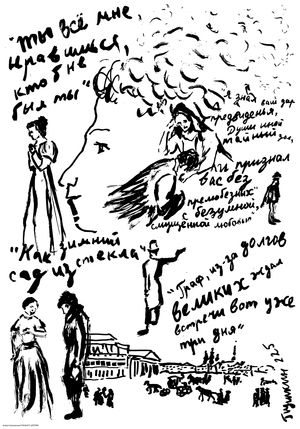 "Ты всё мне,
нравишься,
кто б не
был ты"
Я знал ваш дар
предвиденья,
Души иной
тайный
И признал
вас без
"прелюбезных"
с безумной,
смущённой любовью"
"Как зимний
сад из стекла"
"Граф, из-за долгов
великих ждал
встречи вот уже
три дня"
225